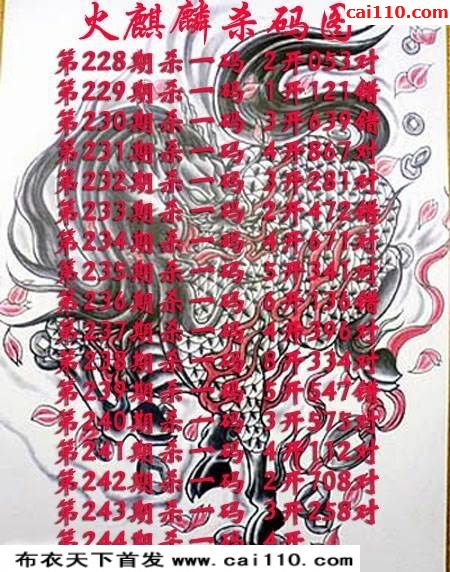 cai110.com
火麒麟杀码图
第228期杀一码 2开053对
第229期杀一码 1开121错
第230期杀一码 3开639错
第231期杀一码 4开867对
第232期杀一码 3开281对
第233期杀一码 2开472错
第234期杀一码 4开671对
第235期杀一码 5开341对
第236期杀一码 6开136错
第237期杀一码 4开396对
第238期杀一码 8开334对
第239期杀一码 5开547错
第240期杀一码 3开575对
第241期杀一码 4开112对
第242期杀一码 2开708对
第243期杀一码 3开258对
第244期杀一码 4开
布衣天下首发 www.cai110.com